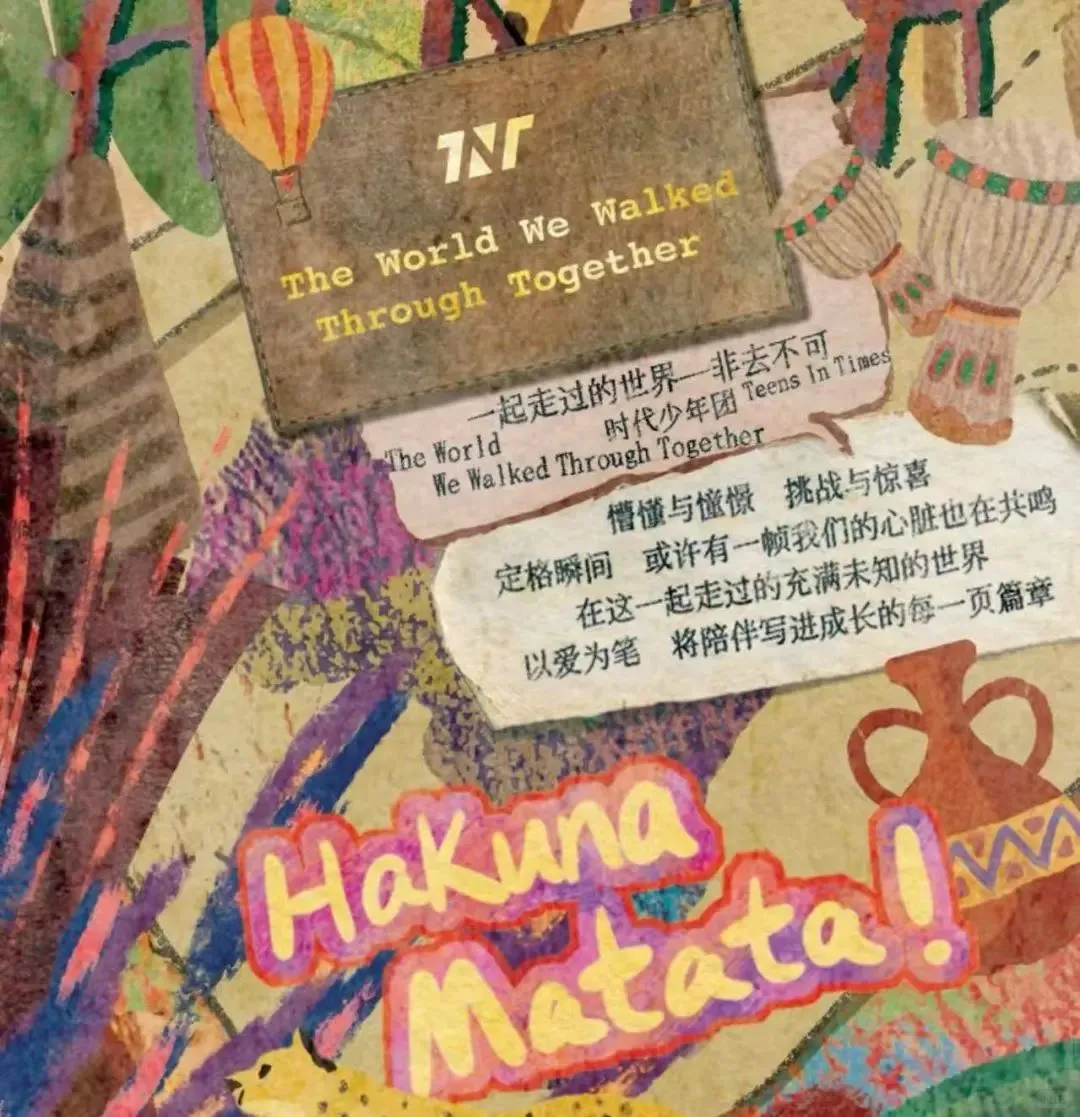 TNT
The World We Walked
Through Together
一起走过的世界—非去不可
时代少年团 Teens In Times
The World
We Walked Through Together
懵懂与憧憬 挑战与惊喜
定格瞬间 或许有一帧我们的心脏也在共鸣
在这一起走过的充满未知的世界
以爱为笔 将陪伴写进成长的每一页篇章
Hakuna
Matata!